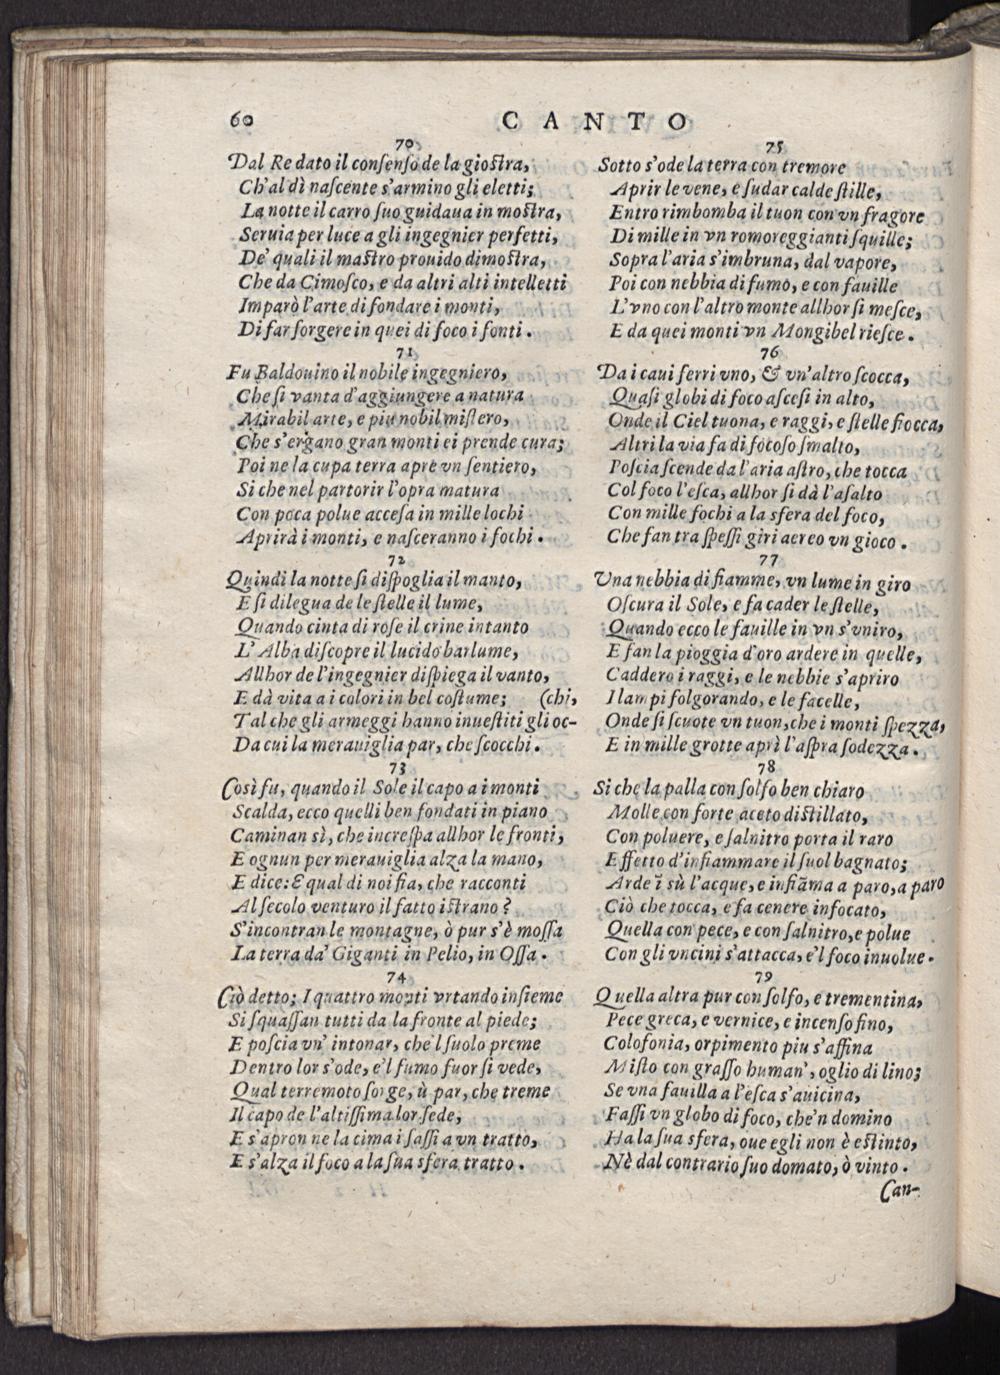 60
CANTO
70
Dal Re dato il conſenſo de la gioſtra,
Ch'al dì naſcente s'armino gli eletti;
La notte il carro ſuo guidaua in moſtra,
Seruia per luce a gli ingegnier perfetti,
De' quali il maſtro prouido dimoſtra,
Che da Cimoſco, e da altri alti intelletti
Imparò l'arte di fondare i monti,
Di far ſorgere in quei di foco i fonti.
71
Fu Baldouino il nobile ingegniero,
Che ſi vanta d'aggiungere a natura
Mirabil arte, e piu nobil miſtero,
Che s'ergano gran monti ei prende cura;
Poi ne la cupa terra apre vn ſentiero,
Si che nel partorir l'opra matura
Con poca polue acceſa in mille lochi
Aprirà i monti, e naſceranno i fochi.
72
Quindi la notte ſi diſpoglia il manto,
E ſi dilegua de le ſtelle il lume,
Quando cinta di roſe il crine intanto
L'Alba diſcopre il lucido barlume,
Allhor de l'ingegnier diſpiega il vanto,
E dà vita a i colori in bel coſtume; (chi,
Tal che gli armeggi hanno inueſtiti gli oc-
Da cui la merauiglia par, che ſcocchi.
73
Così fu, quando il Sole il capo a i monti
Scalda, ecco quelli ben fondati in piano
Caminan sì, che increſpa allhor le fronti,
E ognun per merauiglia alza la mano,
E dice: E qual di noi fia, che racconti
Al ſecolo venturo il fatto iſtrano?
S'incontran le montagne, ò pur s'è moſſa
La terra da' Giganti in Pelio, in Oſſa.
74
Ciò detto; I quattro monti vrtando inſieme
Si ſquaſſan tutti da la fronte al piede;
E poſcia vn' intonar, che'l ſuolo preme
Dentro lor s'ode, e'l fumo fuor ſi vede,
Qual terremoto ſorge, ù par, che treme
Il capo de l'altiſſima lor ſede,
E s'apron ne la cima i ſaſſi a vn tratto,
E s'alza il foco a la ſua sfera tratto.
75
Sotto s'ode la terra con tremore
Aprir le vene, e ſudar calde ſtille,
Entro rimbomba il tuon con vn fragore
Di mille in vn romoreggianti ſquille;
Sopra l'aria s'imbruna, dal vapore,
Poi con nebbia di fumo, e con fauille
L'vno con l'altro monte allhor ſi meſce,
E da quei monti vn Mongibel rieſce.
76
Da i caui ferri vno, & vn'altro ſcocca,
Quaſi globi di foco aſceſi in alto,
Onde il Ciel tuona, e raggi, e ſtelle fiocca,
Altri la via fa di focoſo ſmalto,
Poſcia ſcende da l'aria aſtro, che tocca
Col foco l'eſca, allhor ſi dà l'aſalto
Con mille fochi a la sfera del foco,
Che fan tra ſpeſſi giri aereo vn gioco.
77
Vna nebbia di fiamme, vn lume in giro
Oſcura il Sole, e fa cader le ſtelle,
Quando ecco le fauille in vn s'vniro,
E fan la pioggia d'oro ardere in quelle,
Caddero i raggi, e le nebbie s'apriro
I lampi folgorando, e le facelle,
Onde ſi ſcuote vn tuon, che i monti ſpezza,
E in mille grotte aprì l'aſpra ſodezza.
78
Si che la palla con ſolfo ben chiaro
Molle con forte aceto diſtillato,
Con poluere, e ſalnitro porta il raro
Effetto d'infiammare il ſuol bagnato;
Arde ī sù l'acque, e infiāma a paro, a paro
Ciò che tocca, e fa cenere infocato,
Quella con pece, e con ſalnitro, e polue
Con gli vncini s'attacca, e'l foco inuolue.
79
Quella altra pur con ſolfo, e trementina,
Pece greca, e vernice, e incenſo fino,
Colofonia, orpimento piu s'affina
Miſto con graſſo human', oglio di lino;
Se vna fauilla a l'eſca s'auicina,
Faſſi vn globo di foco, che'n domino
Ha la ſua sfera, oue egli non è eſtinto,
Nè dal contrario ſuo domato, ò vinto.
Can-